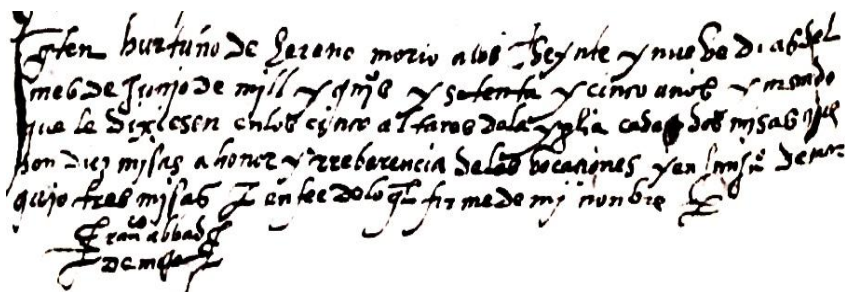 yten hurtuño de herenc morio a los veynte y nuebe dias del
mes de junjo de mill y qujs y setenta y cinco años y mando
que le dixiesen en los cinco altares de la yglia cada dos misas que
son diez misas a honor y rreberencia de las bocaciones y en
qujo tres misas en fee de lo ql firme de mj nonbre
franco abbad
de